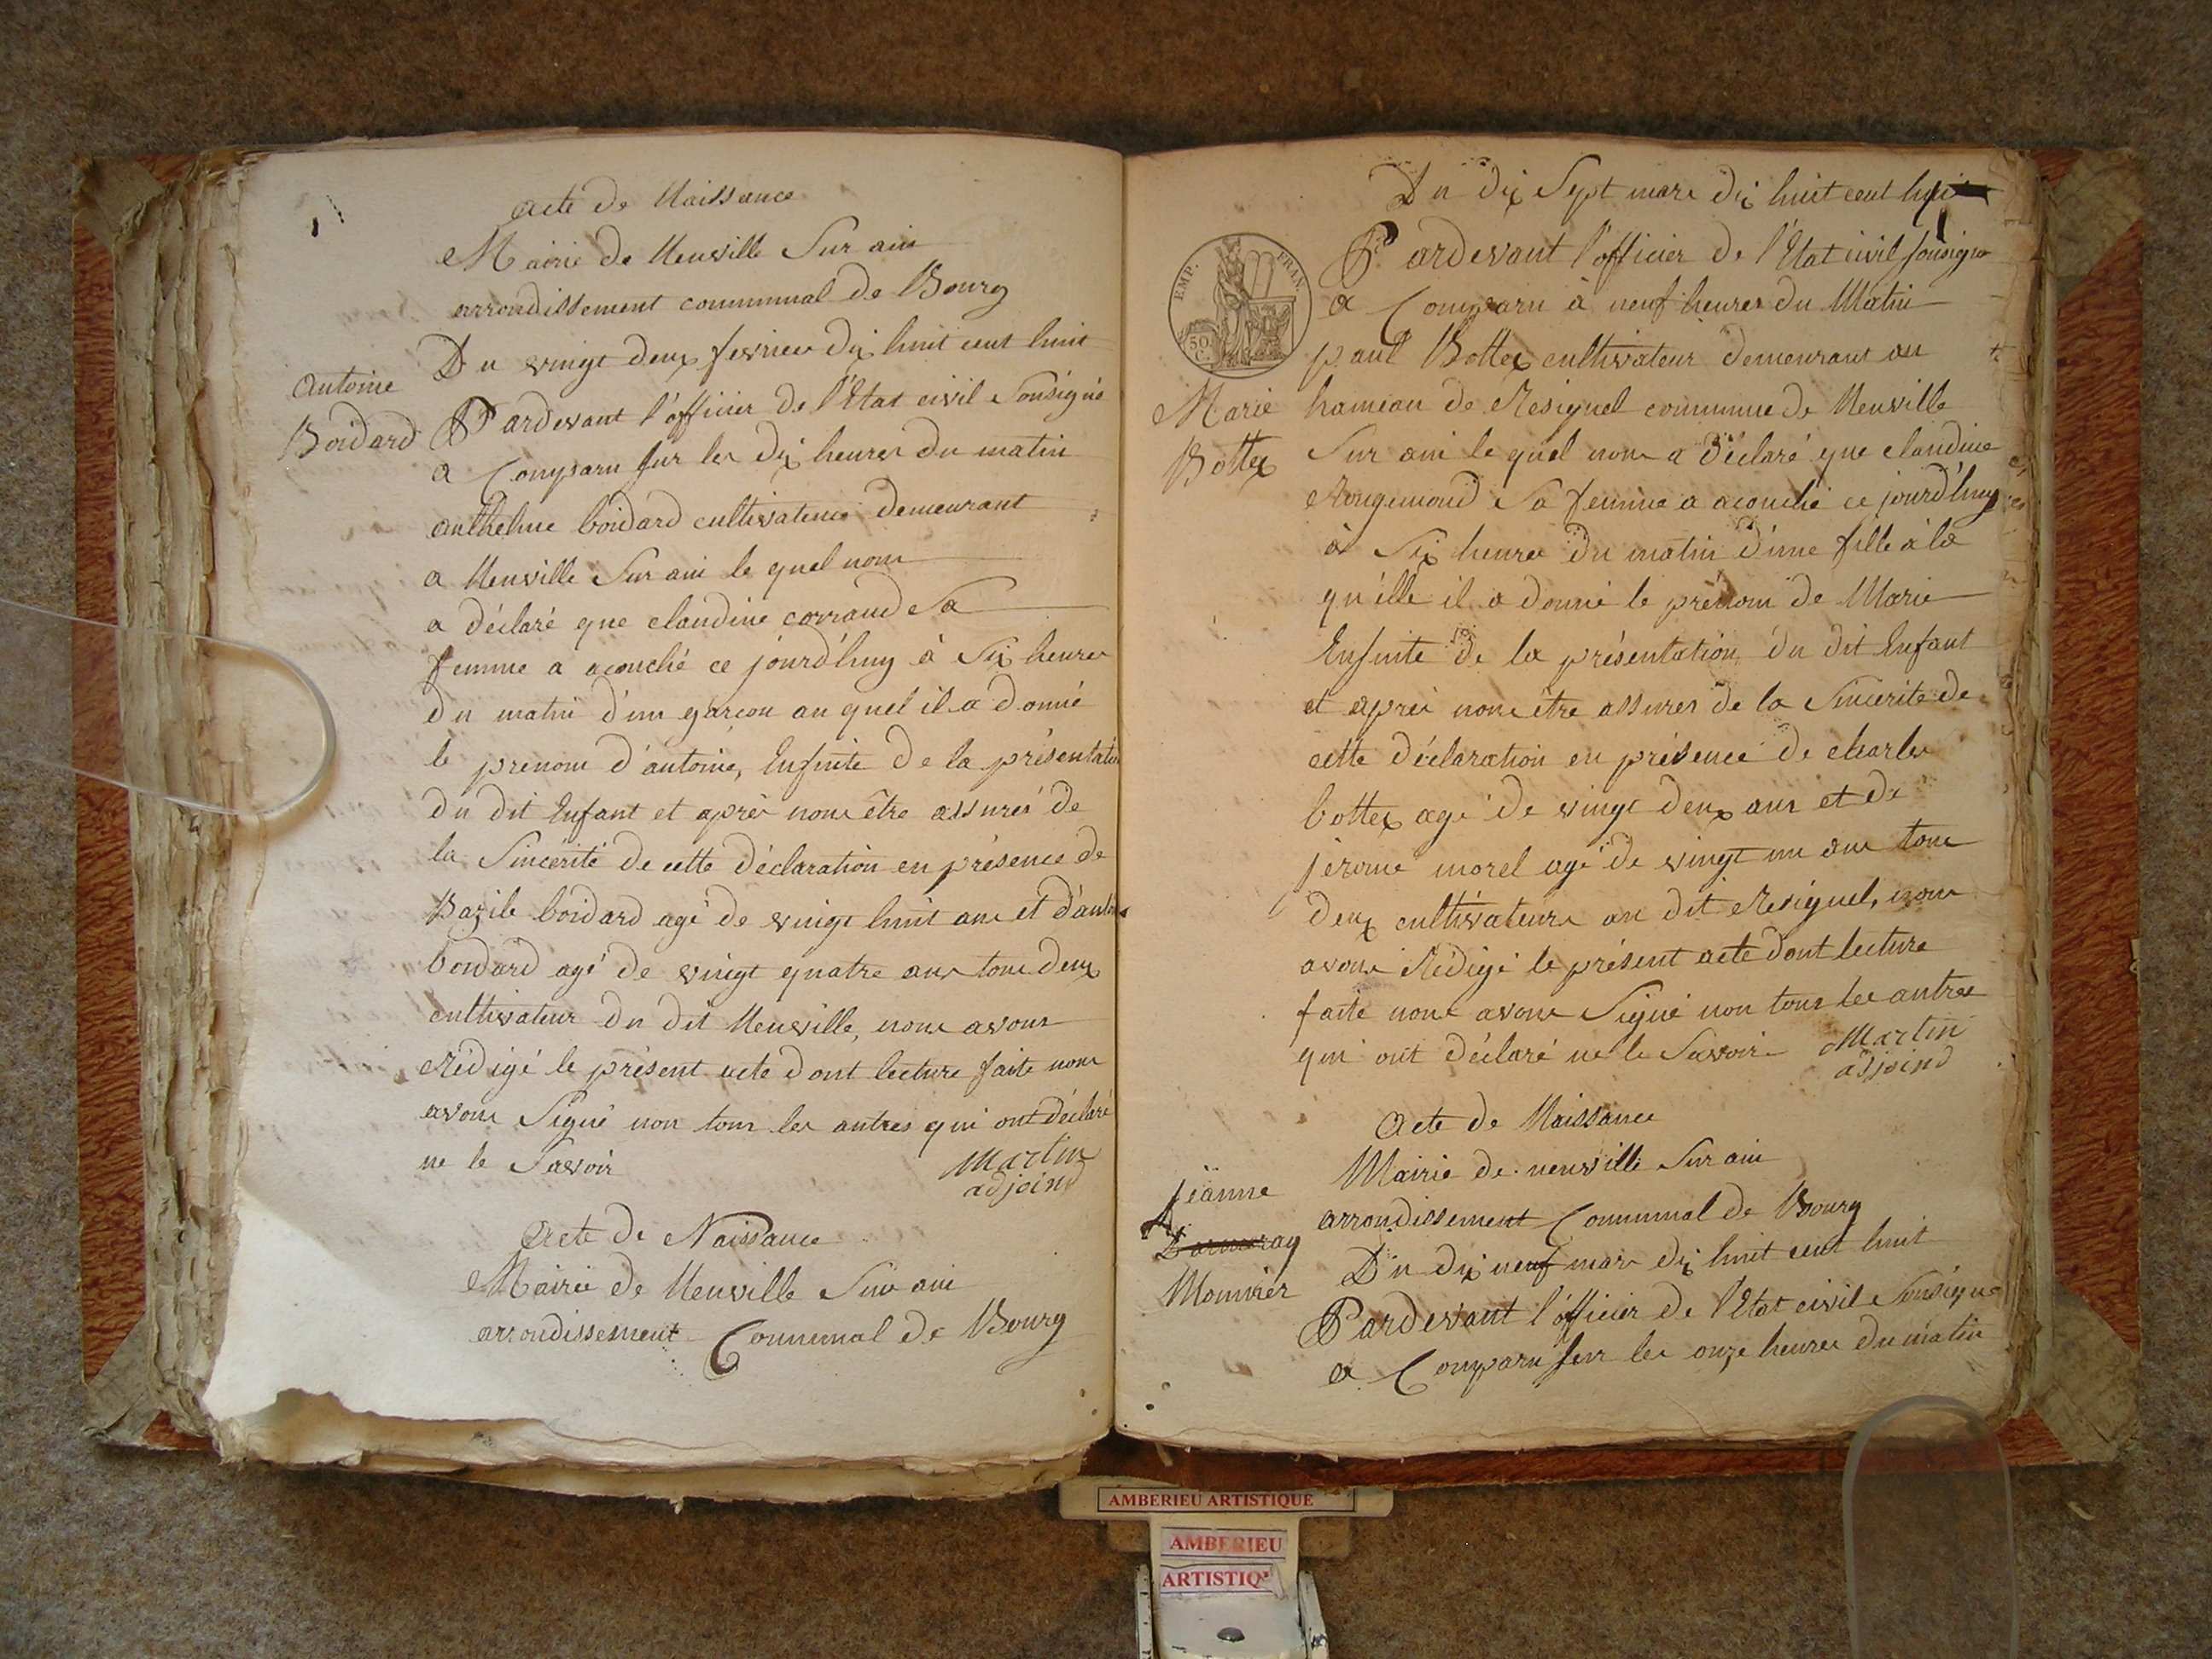 acte de Naissance
Mairie de Neuville Sur ain
arrondissement communal de Bourg
Du vingt deux fevrier dix huit cent huit
Antoine
Boidard
Pardevant l'officier de l'Etat civil Sousigné
a Comparu sur les dix heures du matin
anthelme boidard cultivateur demeurant
a Neuville Sur ain le quel nous
a déclaré que claudine corraud Sa
femme a acouché ce jourd'huy à Six heures
du matin d'un garcon au quel il a donné
le prenom d'antoine, Ensuite de la présentation
du dit Enfant et après nous être assurés de
la Sincérité de cette déclaration en présence de
Bazile boidard agé de vingt huit ans et d'antoine
boidard agé de vingt quatre ans tous deux
cultivateur du dit Neuville, nous avons
Rédigé le présent acte dont lecture faite nous
avons Signé non tous les autres qui ont déclaré
ne le Savoir
Martin
adjoind
Acte de Naissance
Mairie de Neuville Sur ain
arrondissement Communal de Bourg
Du dix Sept mars dix huit cent huit
EMP. FRAN.
50
C.
Pardevant l'officier de l'Etat civil sousigné
a Comparu à neuf heures du Matin
paul Bottex cultivateur demeurant au
Marie
Bottex
hameau de Resignel commune de Neuville
Sur ain le quel nous a déclaré que claudine
Rougemond Sa femme a acouché ce jourd'huy
à Six heures du matin d'une fille à la
qu'elle il a donné le prénom de Marie
Ensuite de la présentation du dit Enfant
et après nous être assures de la Sincerité de
cette déclaration en présence de charles
bottex agé de vingt deux ans et de
jerome morel agé de vingt un ans tous
deux cultivateurs au dit Resignel, nous
avons Rédigé le présent acte dont lecture
faite nous avons Signé non tous les autres
qui ont déclaré ne le Savoir
Martin
adjoind
Acte de Naissance
Mairie de neuville Sur ain
Jeanne
Monnier
arrondissement Communal de Bourg
Du dix neuf mars dix huit cent huit
Pardevant l'officier de l'Etat civil Sousigné
a Comparu sur les onze heures du matin
AMBERIEU ARTISTIQUE
AMBERIEU
ARTISTIQ